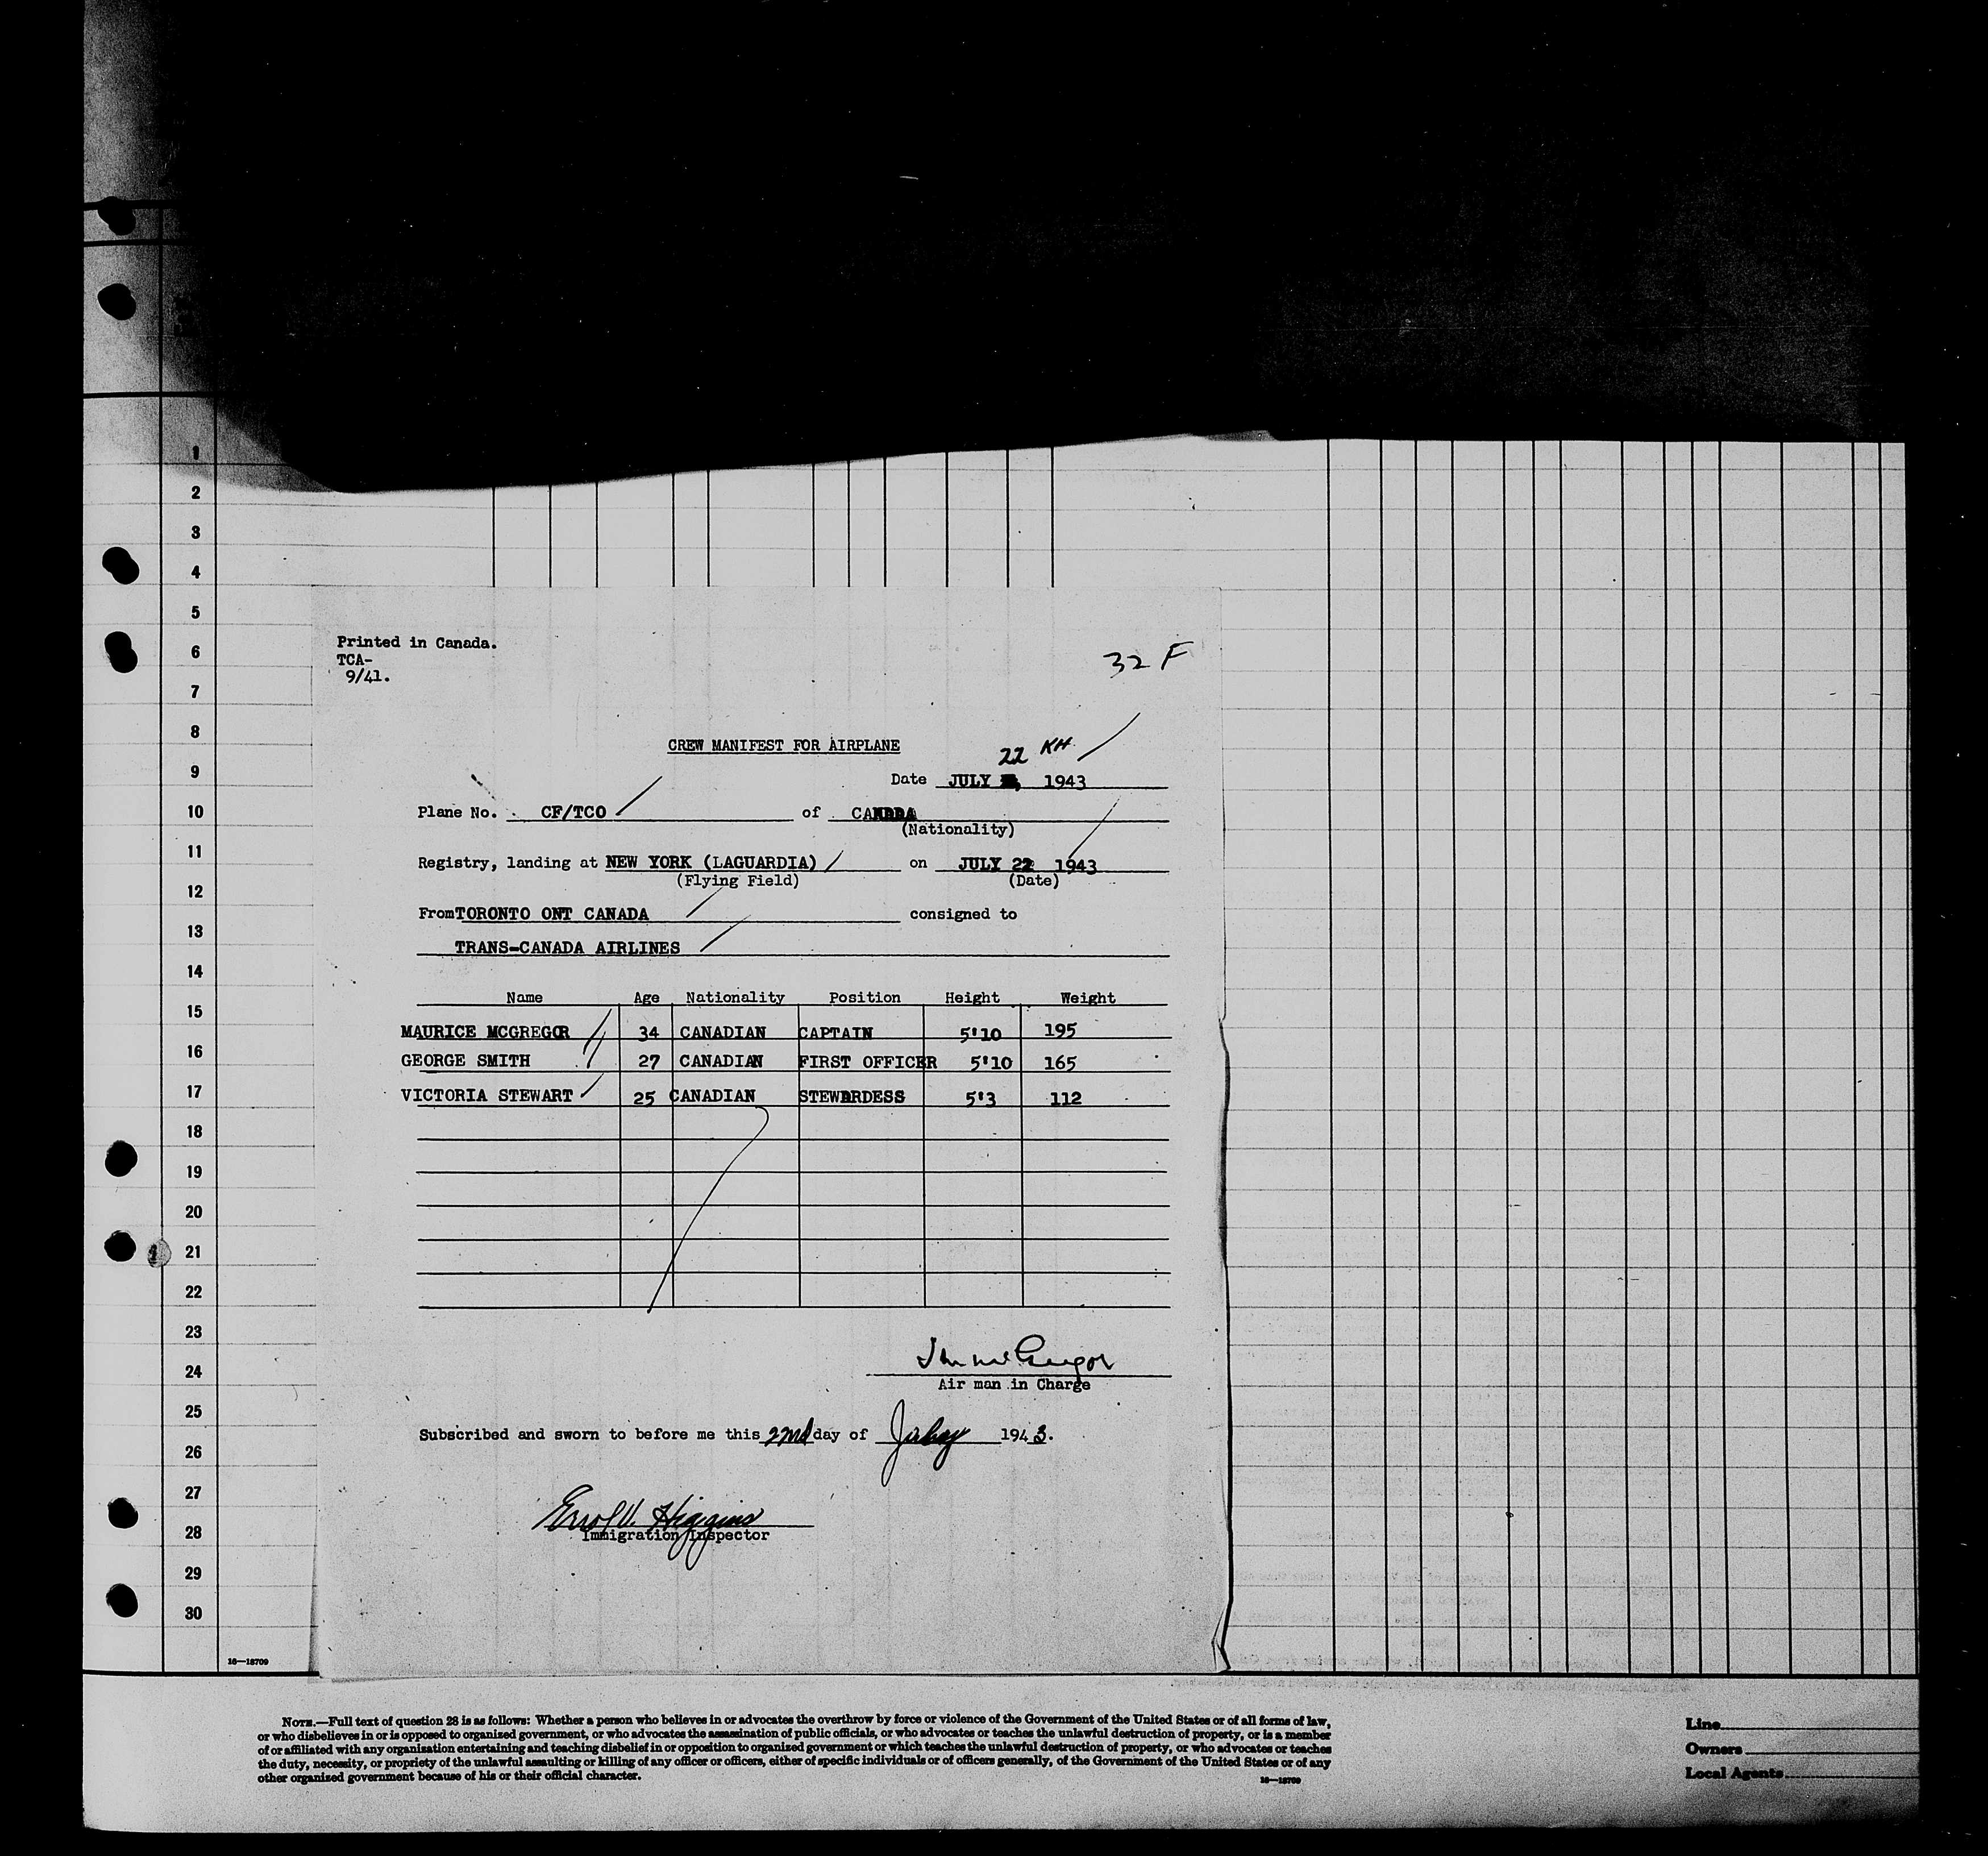 1
2
3
4
5
6
7
8
9
10
11
12
13
14
15
16
17
18
19
20
21
22
23
24
25
26
27
28
29
30
16—18709
Printed in Canada.
TCA-
9/41.
32 F
CREW MANIFEST FOR AIRPLANE
22 KH
Date JULY 1943
Plane No. CF/TCO of CANADA
(Nationality)
Registry, landing at NEW YORK (LAGUARDIA) on JULY 22 1943
(Flying Field) (Date)
From TORONTO ONT CANADA consigned to
TRANS-CANADA AIRLINES
Name Age Nationality Position Height Weight
MAURICE MCGREGOR 34 CANADIAN CAPTAIN 5'10 195
GEORGE SMITH 27 CANADIAN FIRST OFFICER 5'10 165
VICTORIA STEWART 25 CANADIAN STEWARDESS 5'3 112
McGregor
Air man in Charge
Subscribed and sworn to before me this 22nd day of July 1943.
Errol V. Higgins
Immigration Inspector
NOTE.—Full text of question 28 is as follows: Whether a person who believes in or advocates the overthrow by force or violence of the Government of the United States or of all forms of law,
or who disbelieves in or is opposed to organized government, or who advocates the assassination of public officials, or who advocates or teaches the unlawful destruction of property, or is a member
of or affiliated with any organization entertaining and teaching disbelief in or opposition to organized government or which teaches the unlawful destruction of property, or who advocates or teaches
the duty, necessity, or propriety of the unlawful assaulting or killing of any officer or officers, either of specific individuals or of officers generally, of the Government of the United States or of any
other organized government because of his or their official character.
16—18709
Line
Owners
Local Agents